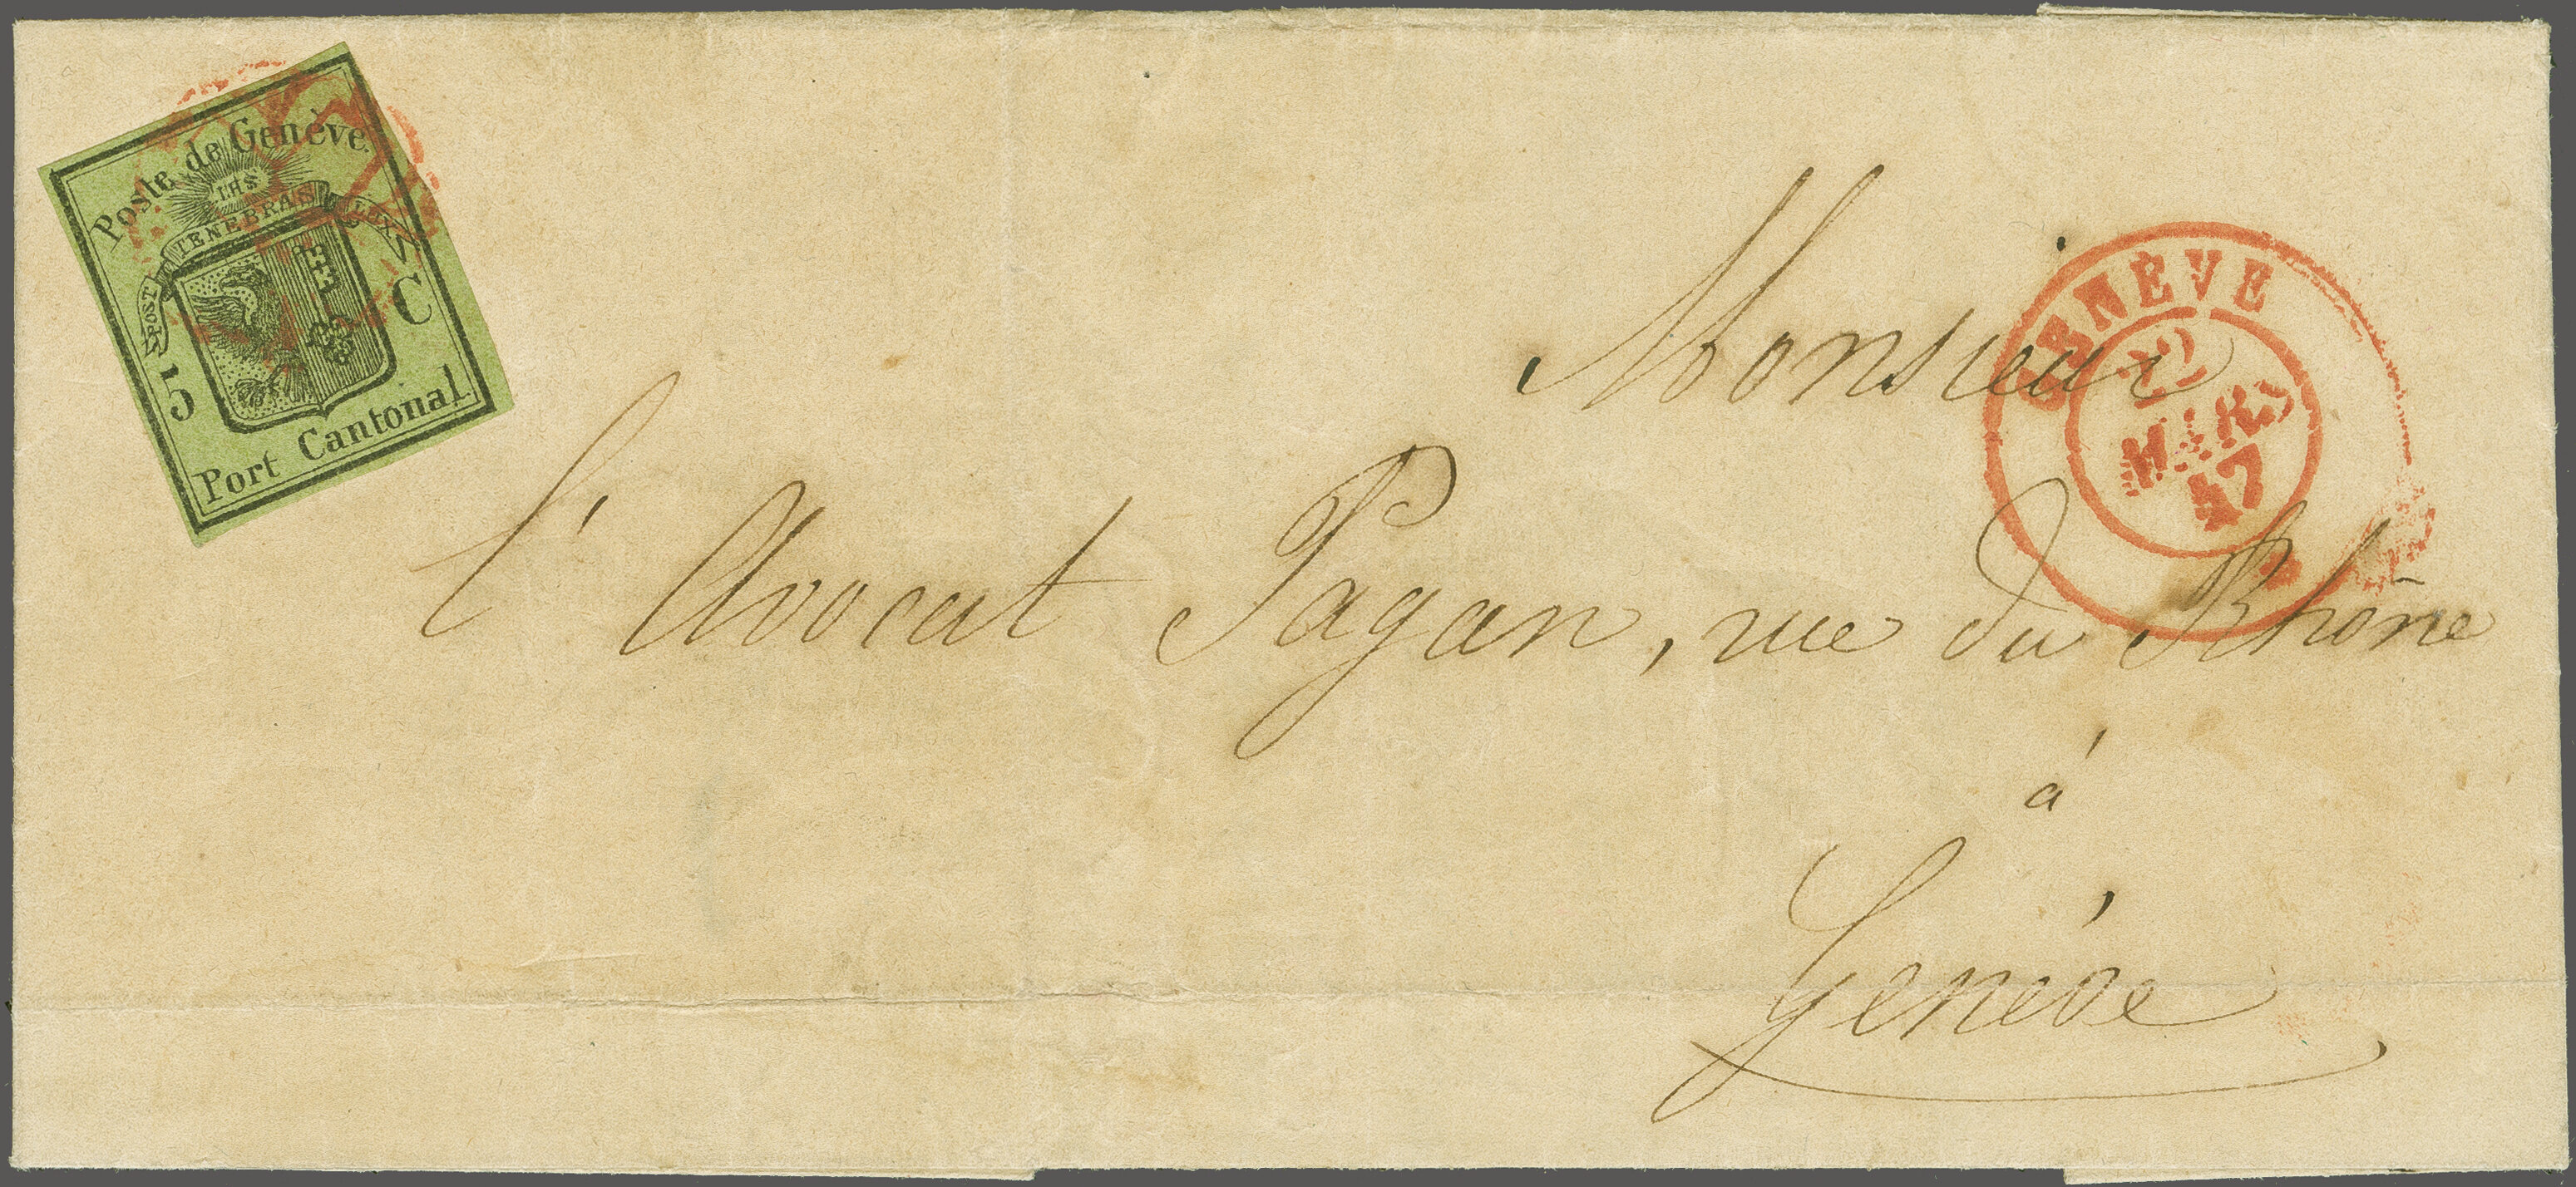 Poste de Genève.
IHS
POST TENEBRAS LUX
5 C
Port Cantonal.
GENÈVE
22
MARS
47
Monsieur
l'Avocat Pagan, rue du Rhône
à
Genève